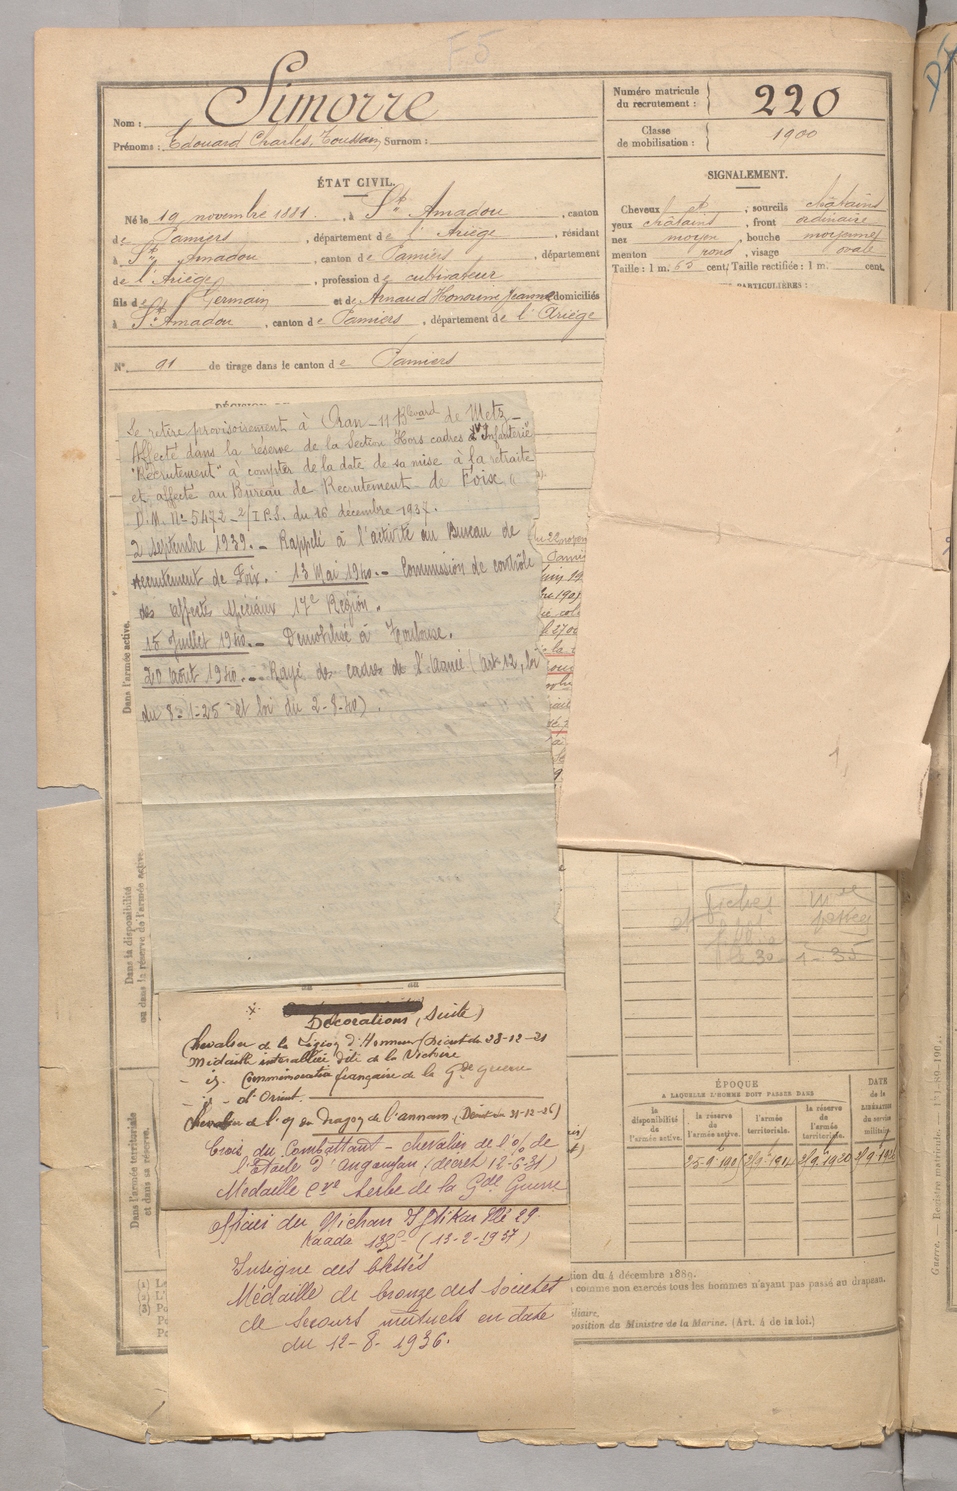 F5
Nom : Simorre
Prénoms : Edouard Charles, Toussain Surnom :
Numéro matricule du recrutement : 220
Classe de mobilisation : 1900
ÉTAT CIVIL.
Né le 19 novembre 1881. , à St Amadou , canton
de Pamiers , département de l'Ariège , résidant
à St Amadou , canton de Pamiers , département
de l'Ariège , profession de cultivateur
fils de Germain et de Arnaud Honorine Jeanne domiciliés
à St Amadou , canton de Pamiers , département de l'Ariège
N° 91 de tirage dans le canton de Pamiers
SIGNALEMENT.
Cheveux et , sourcils châtains
yeux châtains , front ordinaire
nez moyen , bouche moyenne
menton rond , visage ovale
Taille : 1 m. 65 cent. Taille rectifiée : 1 m. cent.
PARTICULIÈRES :
Se retire provisoirement à Oran – 11 Bevard de Metz –
Affecté dans la réserve de la Section Hors cadres d'Infanterie
"Recrutement" à compter de la date de sa mise à la retraite
et affecté au Bureau de Recrutement de Foix
D.M. N° 5472 – 2/I.P.S. du 16 décembre 1937.
2 septembre 1939. – Rappelé à l'activité au Bureau de
recrutement de Foix. 13 Mai 1940. – Commission de contrôle
des affectés spéciaux 17e Région.
15 Juillet 1940. – Démobilisé à Toulouse.
20 août 1940. – Rayé des cadres de l'armée (art 12, loi
du 8-1-25 et loi du 2-8-40).
Dans l'armée active.
Dans la disponibilité
ou dans la réserve de l'armée active.
Dans l'armée territoriale
et dans sa réserve.
Fiches
1,
Décorations (Suite)
Chevalier de la Légion d'Honneur (Décret du 28-12-21
Médaille interalliée dite de la Victoire
– id. Commémorative française de la Gde guerre
– id – d'Orient.
Chevalier de l'o/ du Dragon de l'annam (Décret du 31-12-26)
Croix du Combattant – Chevalier de l'o/ de
l'Etoile d'Anjouan (décret 12-6-31)
Médaille Cve Serbe de la Gde Guerre
officier du Nichan Iftikar
(13-2-1937)
Insigne des blessés
Médaille de bronze des sociétés
de secours mutuels en date
du 12-8-1936.
ÉPOQUE
A LAQUELLE L'HOMME DOIT PASSER DANS
la disponibilité de l'armée active.
la réserve de l'armée active.
l'armée territoriale.
la réserve de l'armée territoriale.
DATE de la LIBÉRATION du service militaire.
tion du 4 décembre 1889.
comme non exercés tous les hommes n'ayant pas passé au drapeau.
position du Ministre de la Marine. (Art. 4 de la loi.)
Guerre. — Registre matricule.